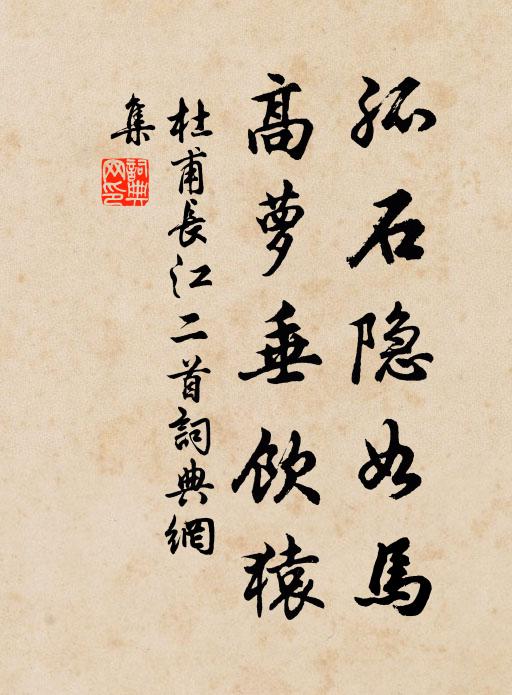 孤石隐如馬
高萝垂飲猿
杜甫長江二首詞典網
集
詞典
网印